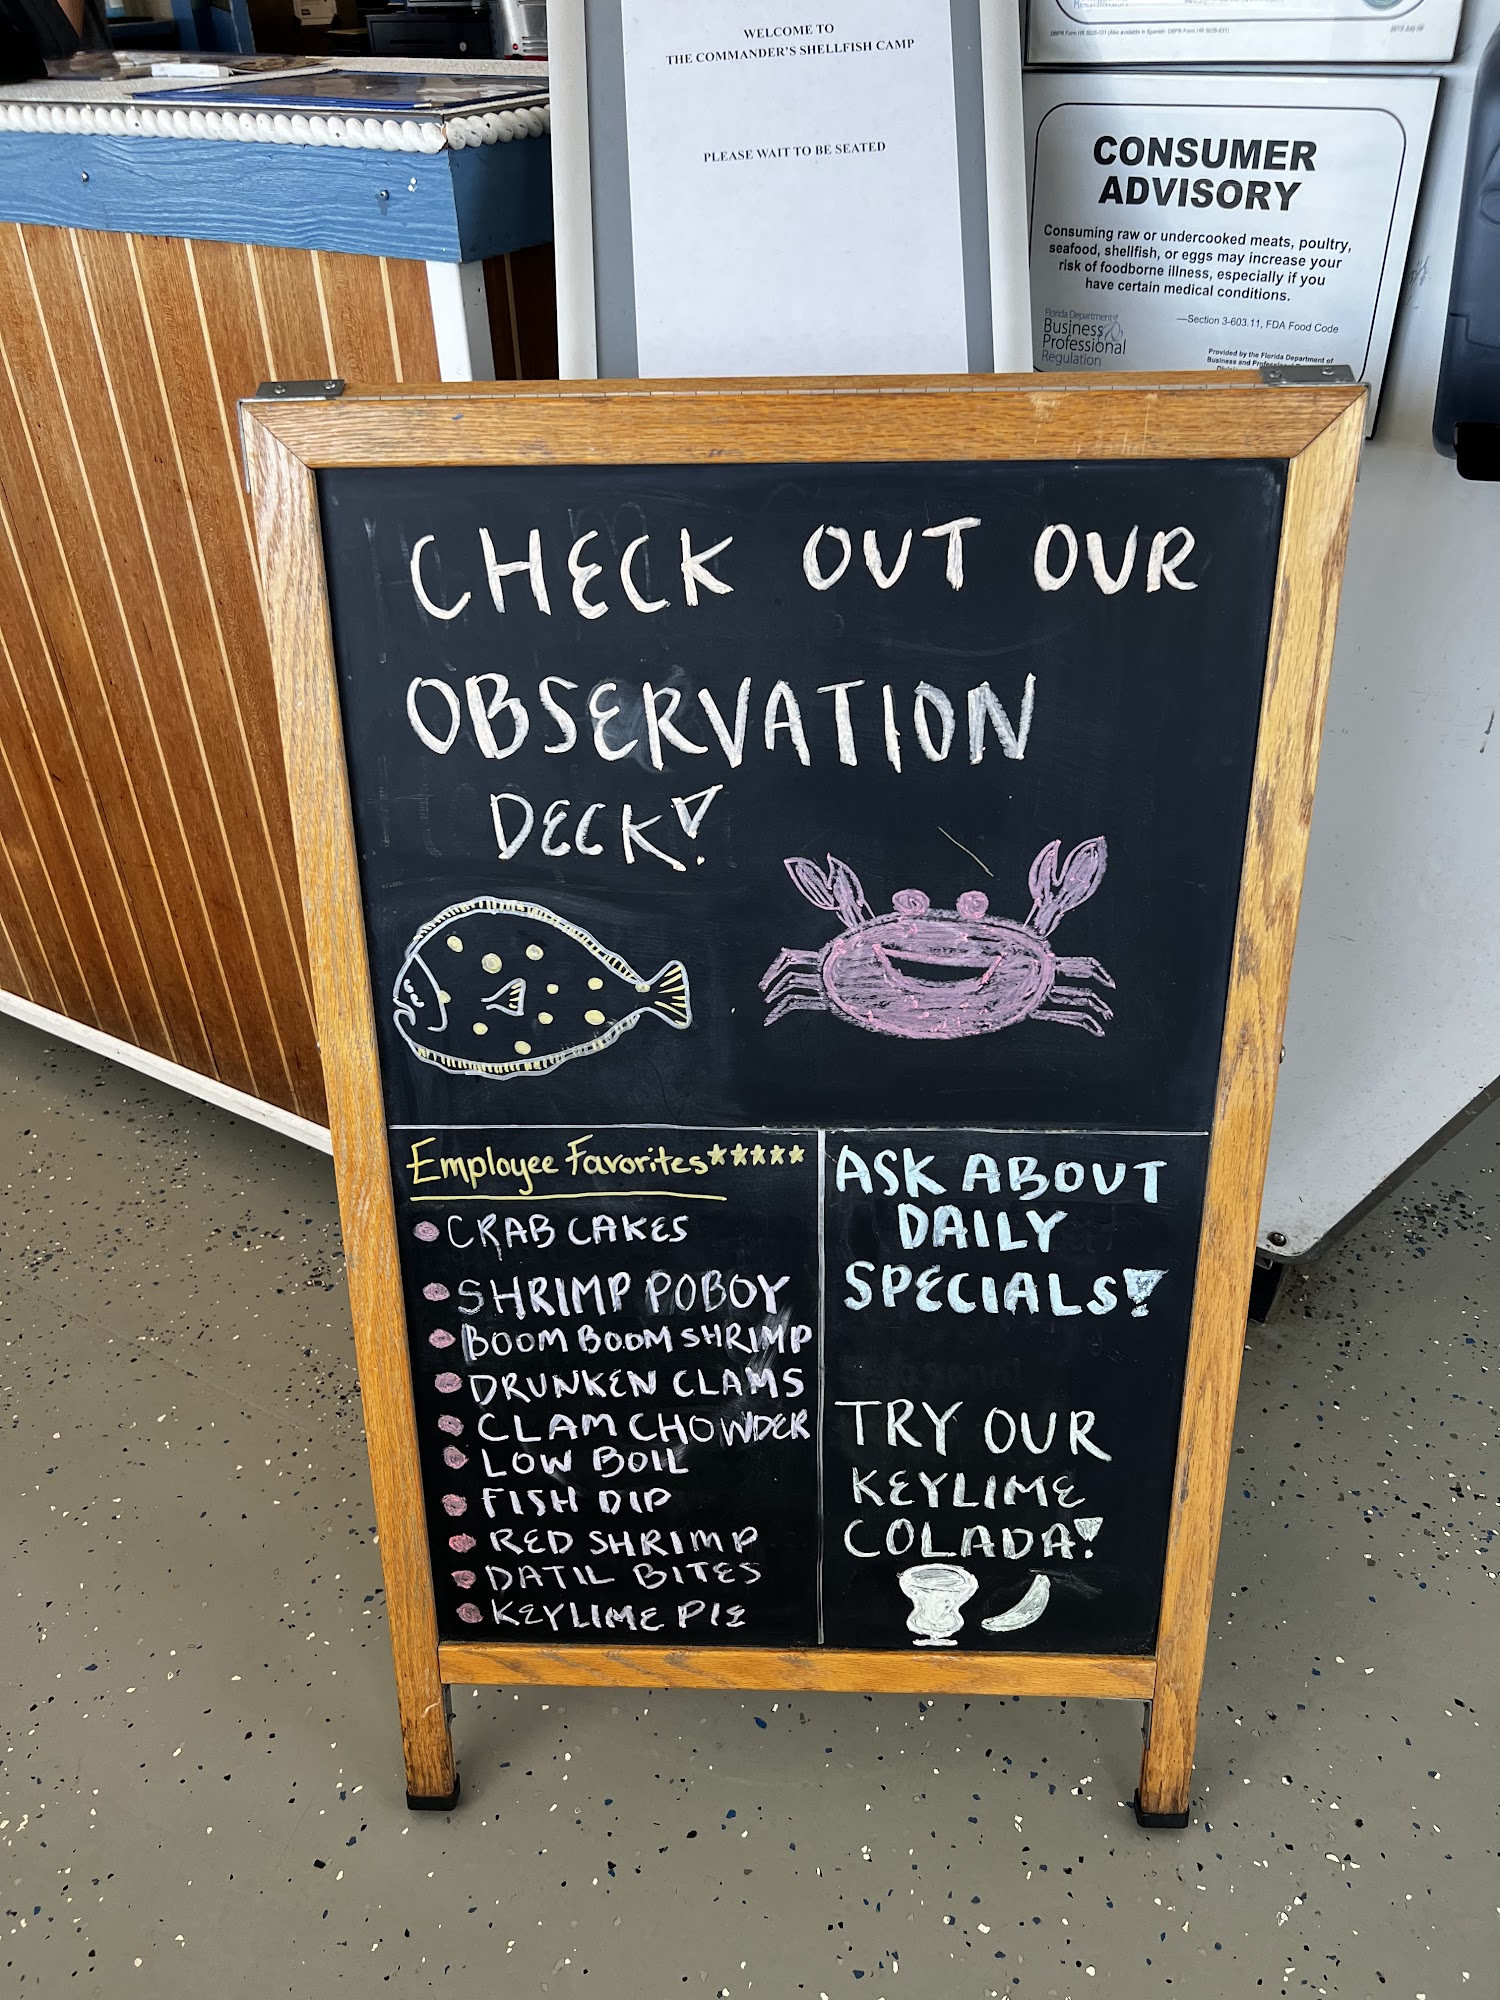 WELCOME TO
THE COMMANDER'S SHELLFISH CAMP
PLEASE WAIT TO BE SEATED
CONSUMER
ADVISORY
Consuming raw or undercooked meats, poultry,
seafood, shellfish, or eggs may increase your
risk of foodborne illness, especially if you
have certain medical conditions.
—Section 3-603.11, FDA Food Code
Florida Department of
Business &
Professional
Regulation
Provided by the Florida Department of
Business and Professional
CHECK OUT OUR
OBSERVATION
DECK!
Employee Favorites*****
CRAB CAKES
SHRIMP POBOY
BOOM BOOM SHRIMP
DRUNKEN CLAMS
CLAM CHOWDER
LOW BOIL
FISH DIP
RED SHRIMP
DATIL BITES
KEYLIME PIE
ASK ABOUT
DAILY
SPECIALS!
TRY OUR
KEYLIME
COLADA!